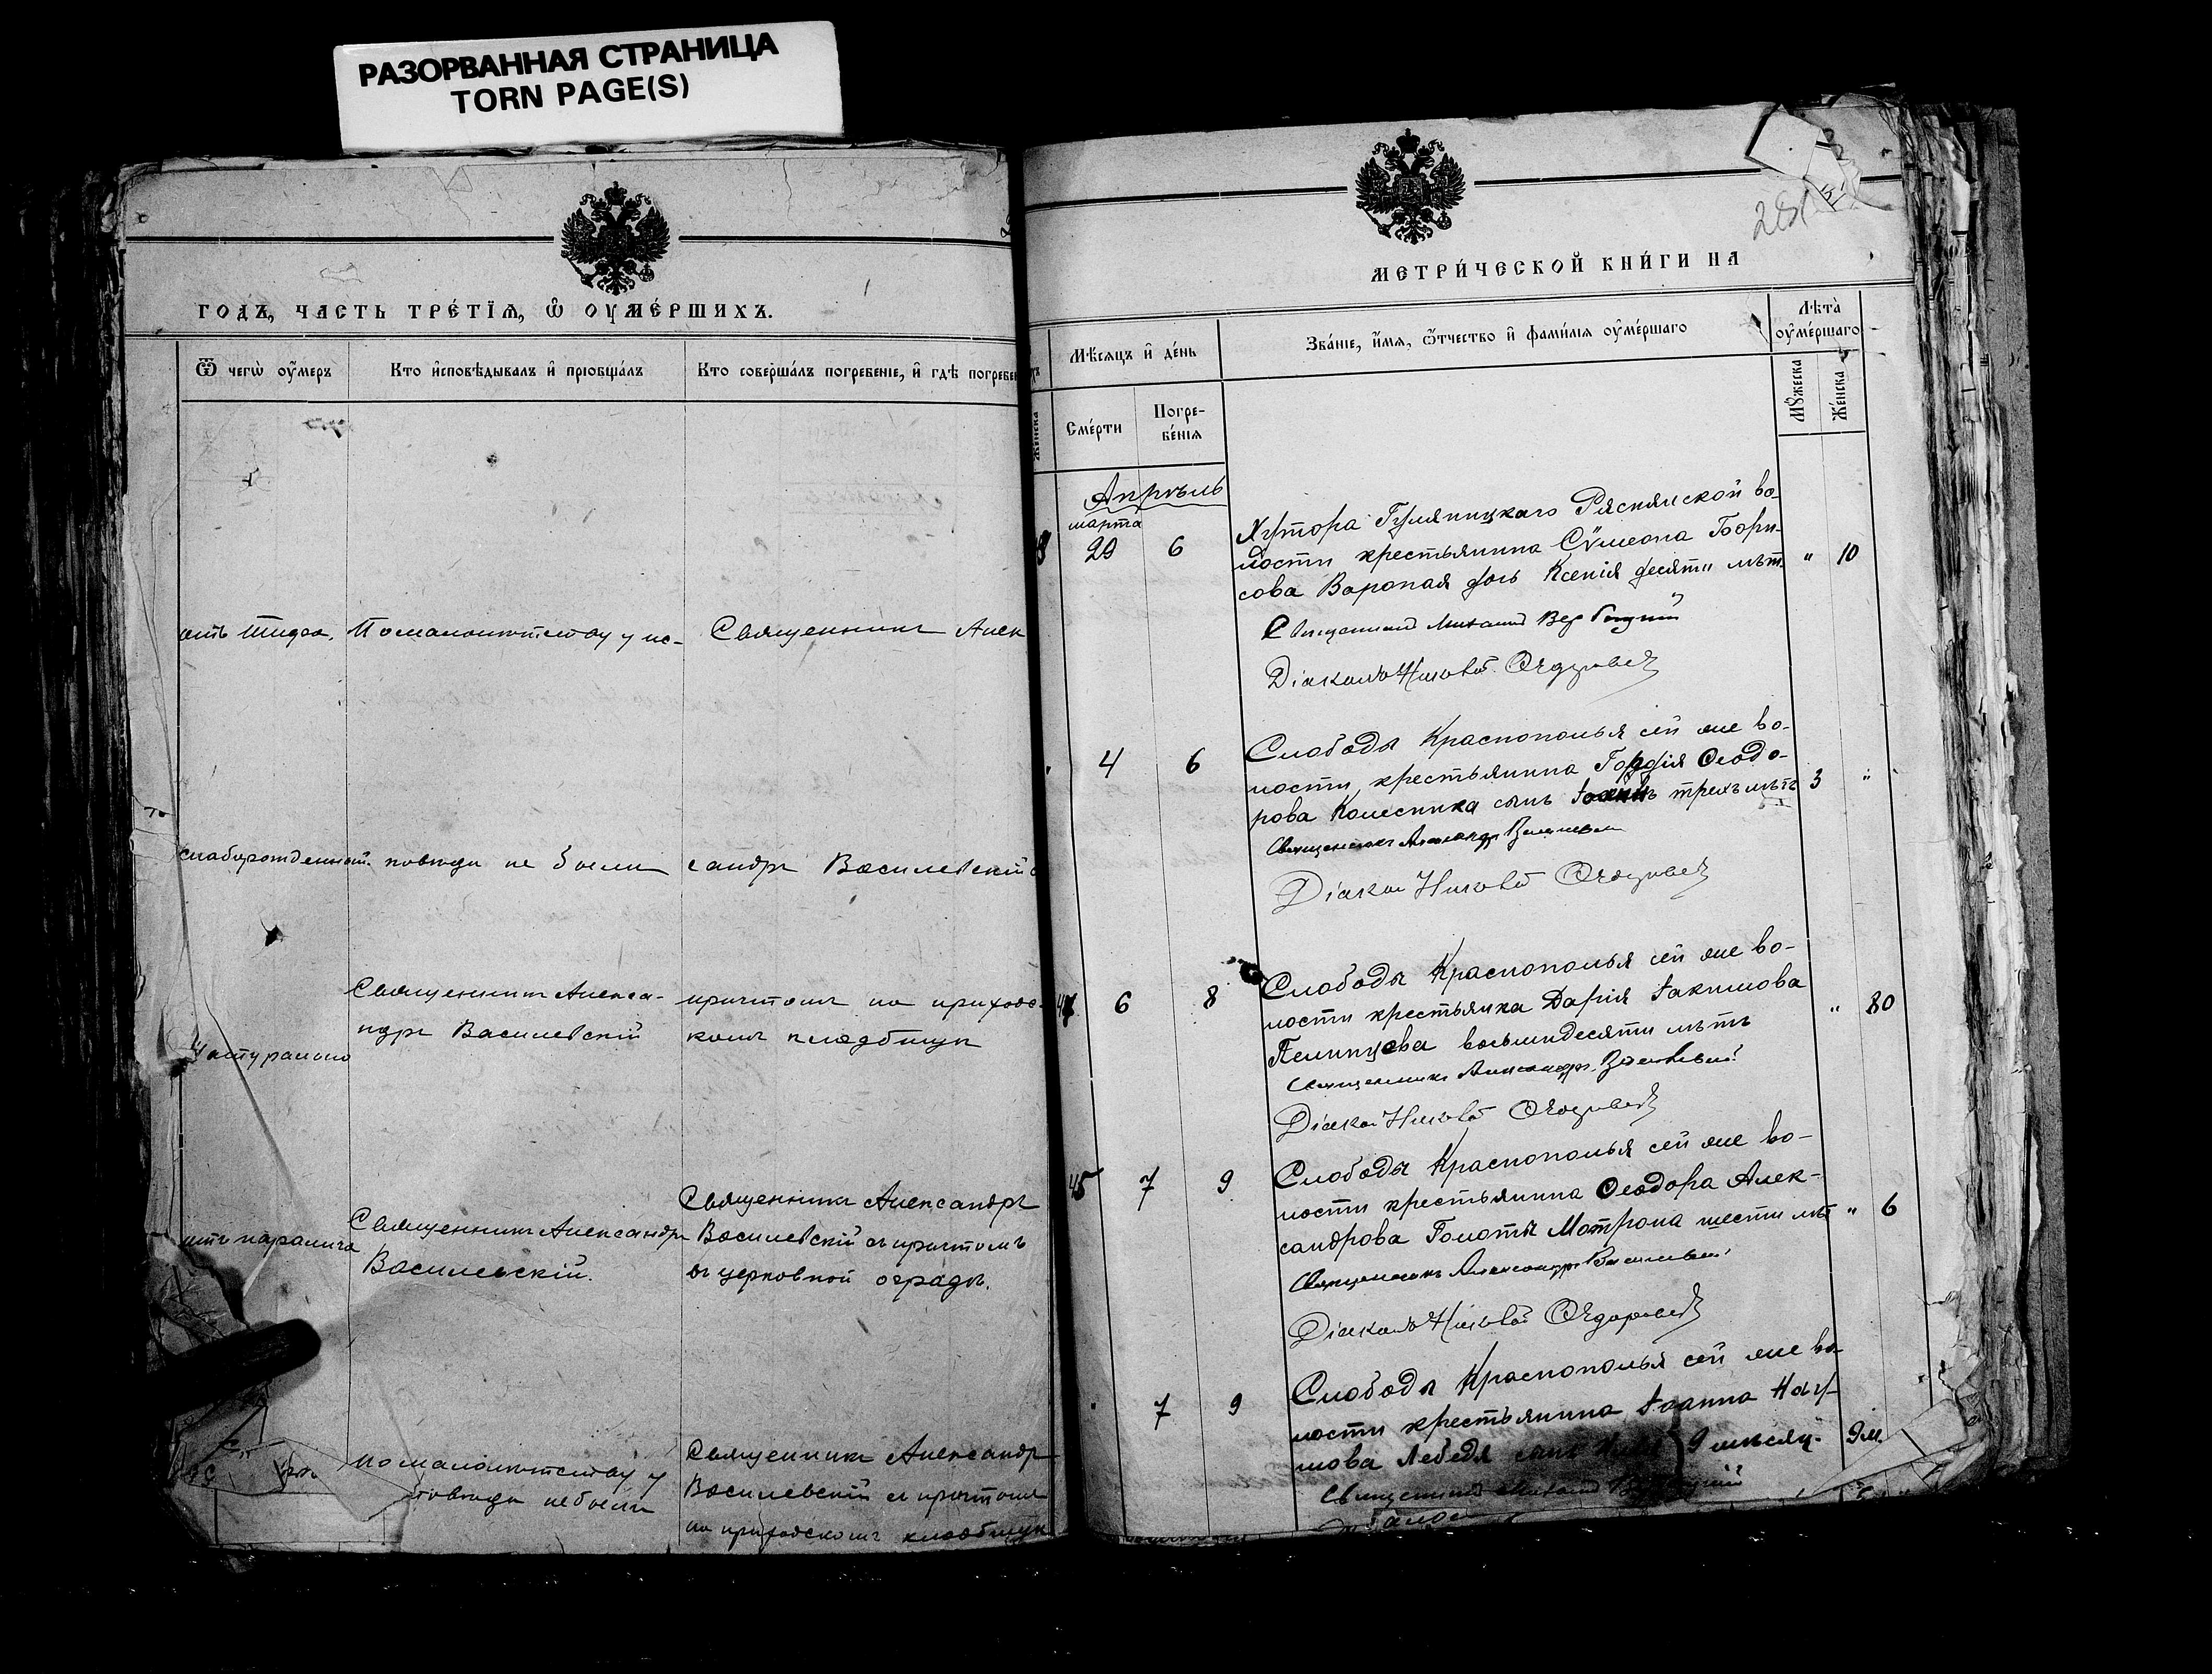 РАЗОРВАННАЯ СТРАНИЦА
TORN PAGE(S)
ГОДЪ, ЧАСТЬ ТРЕ́ТІѦ, Ѡ҆ ОУ҆МЕ́РШИХЪ.
Ѿ чегѡ̀ оу҆́меръ
Кто и҆сповѣ́дывалъ и҆ прїобща́лъ
Кто соверша́лъ погребе́нїе, и҆ гдѣ̀ погребе
отъ тифа.
По малолѣтству у ис-
Священникъ Алек
слаборожденной.
повѣди не были
сандръ Василевскій с
Священникъ Алекса-
ндръ Василевскій
причтомъ на приходс-
комъ кладбищѣ
Натурально
отъ паралича
Священникъ Александръ
Василевскій.
Священникъ Александръ
Василевскій съ причтомъ
въ церковной оградѣ.
по малолѣтству у
повѣди не были
Священникъ Александръ
Василевскій съ причтомъ
на приходскомъ кладбищѣ
281
МЕТРИ́ЧЕСКОЙ КНИ́ГИ НА
Мѣ́сѧцъ и҆ де́нь
Зва́нїе, и҆́мѧ, ѻ҆́тчество и҆ фами́лїѧ оу҆ме́ршаго
Лѣ̑та оу҆ме́ршаго
Же́нска
Сме́рти
Погре-
бе́нїѧ
Мꙋ́жеска
Же́нска
Апрѣль
марта
29 6
Хутора Гуляницкаго Ряснянской во-
лости крестьянина Сѵмеона Бори-
сова Вороная дочь Ксенія десяти лѣт.
" 10
Священникъ Михаилъ
Діаконъ
4 6
Слободы Краснополья сей же во-
лости, крестьянина Гордія Ѳеодо-
рова Колесника сынъ Іоаннъ трехъ лѣтъ
3 "
Священникъ Александръ Василевскій
Діаконъ
6 8
Слободы Краснополья сей же во-
лости крестьянка Дарія Іакимова
восьмидесяти лѣтъ
" 80
Священникъ Александръ Василевскій
Діаконъ
45 7 9
Слободы Краснополья сей же во-
лости крестьянина Ѳеодора Алек-
сандрова Голоты Матрона шести лѣт
" 6
Священникъ Александръ Василевскій
Діаконъ
7 9
Слободы Краснополья сей же во-
лости крестьянина Іоанна Нау-
мова Лебедя 9 мѣсяц.
9 м.
Священникъ Михаилъ